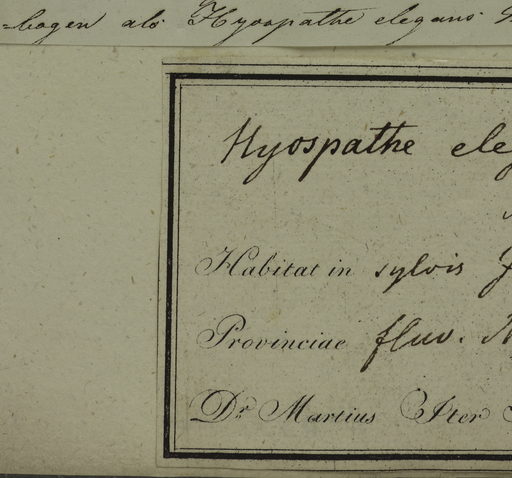 =bogen als Hyospathe elegans
Hyospathe ele
Habitat in sylvis
Provinciae fluv.
Dr. Martius Iter